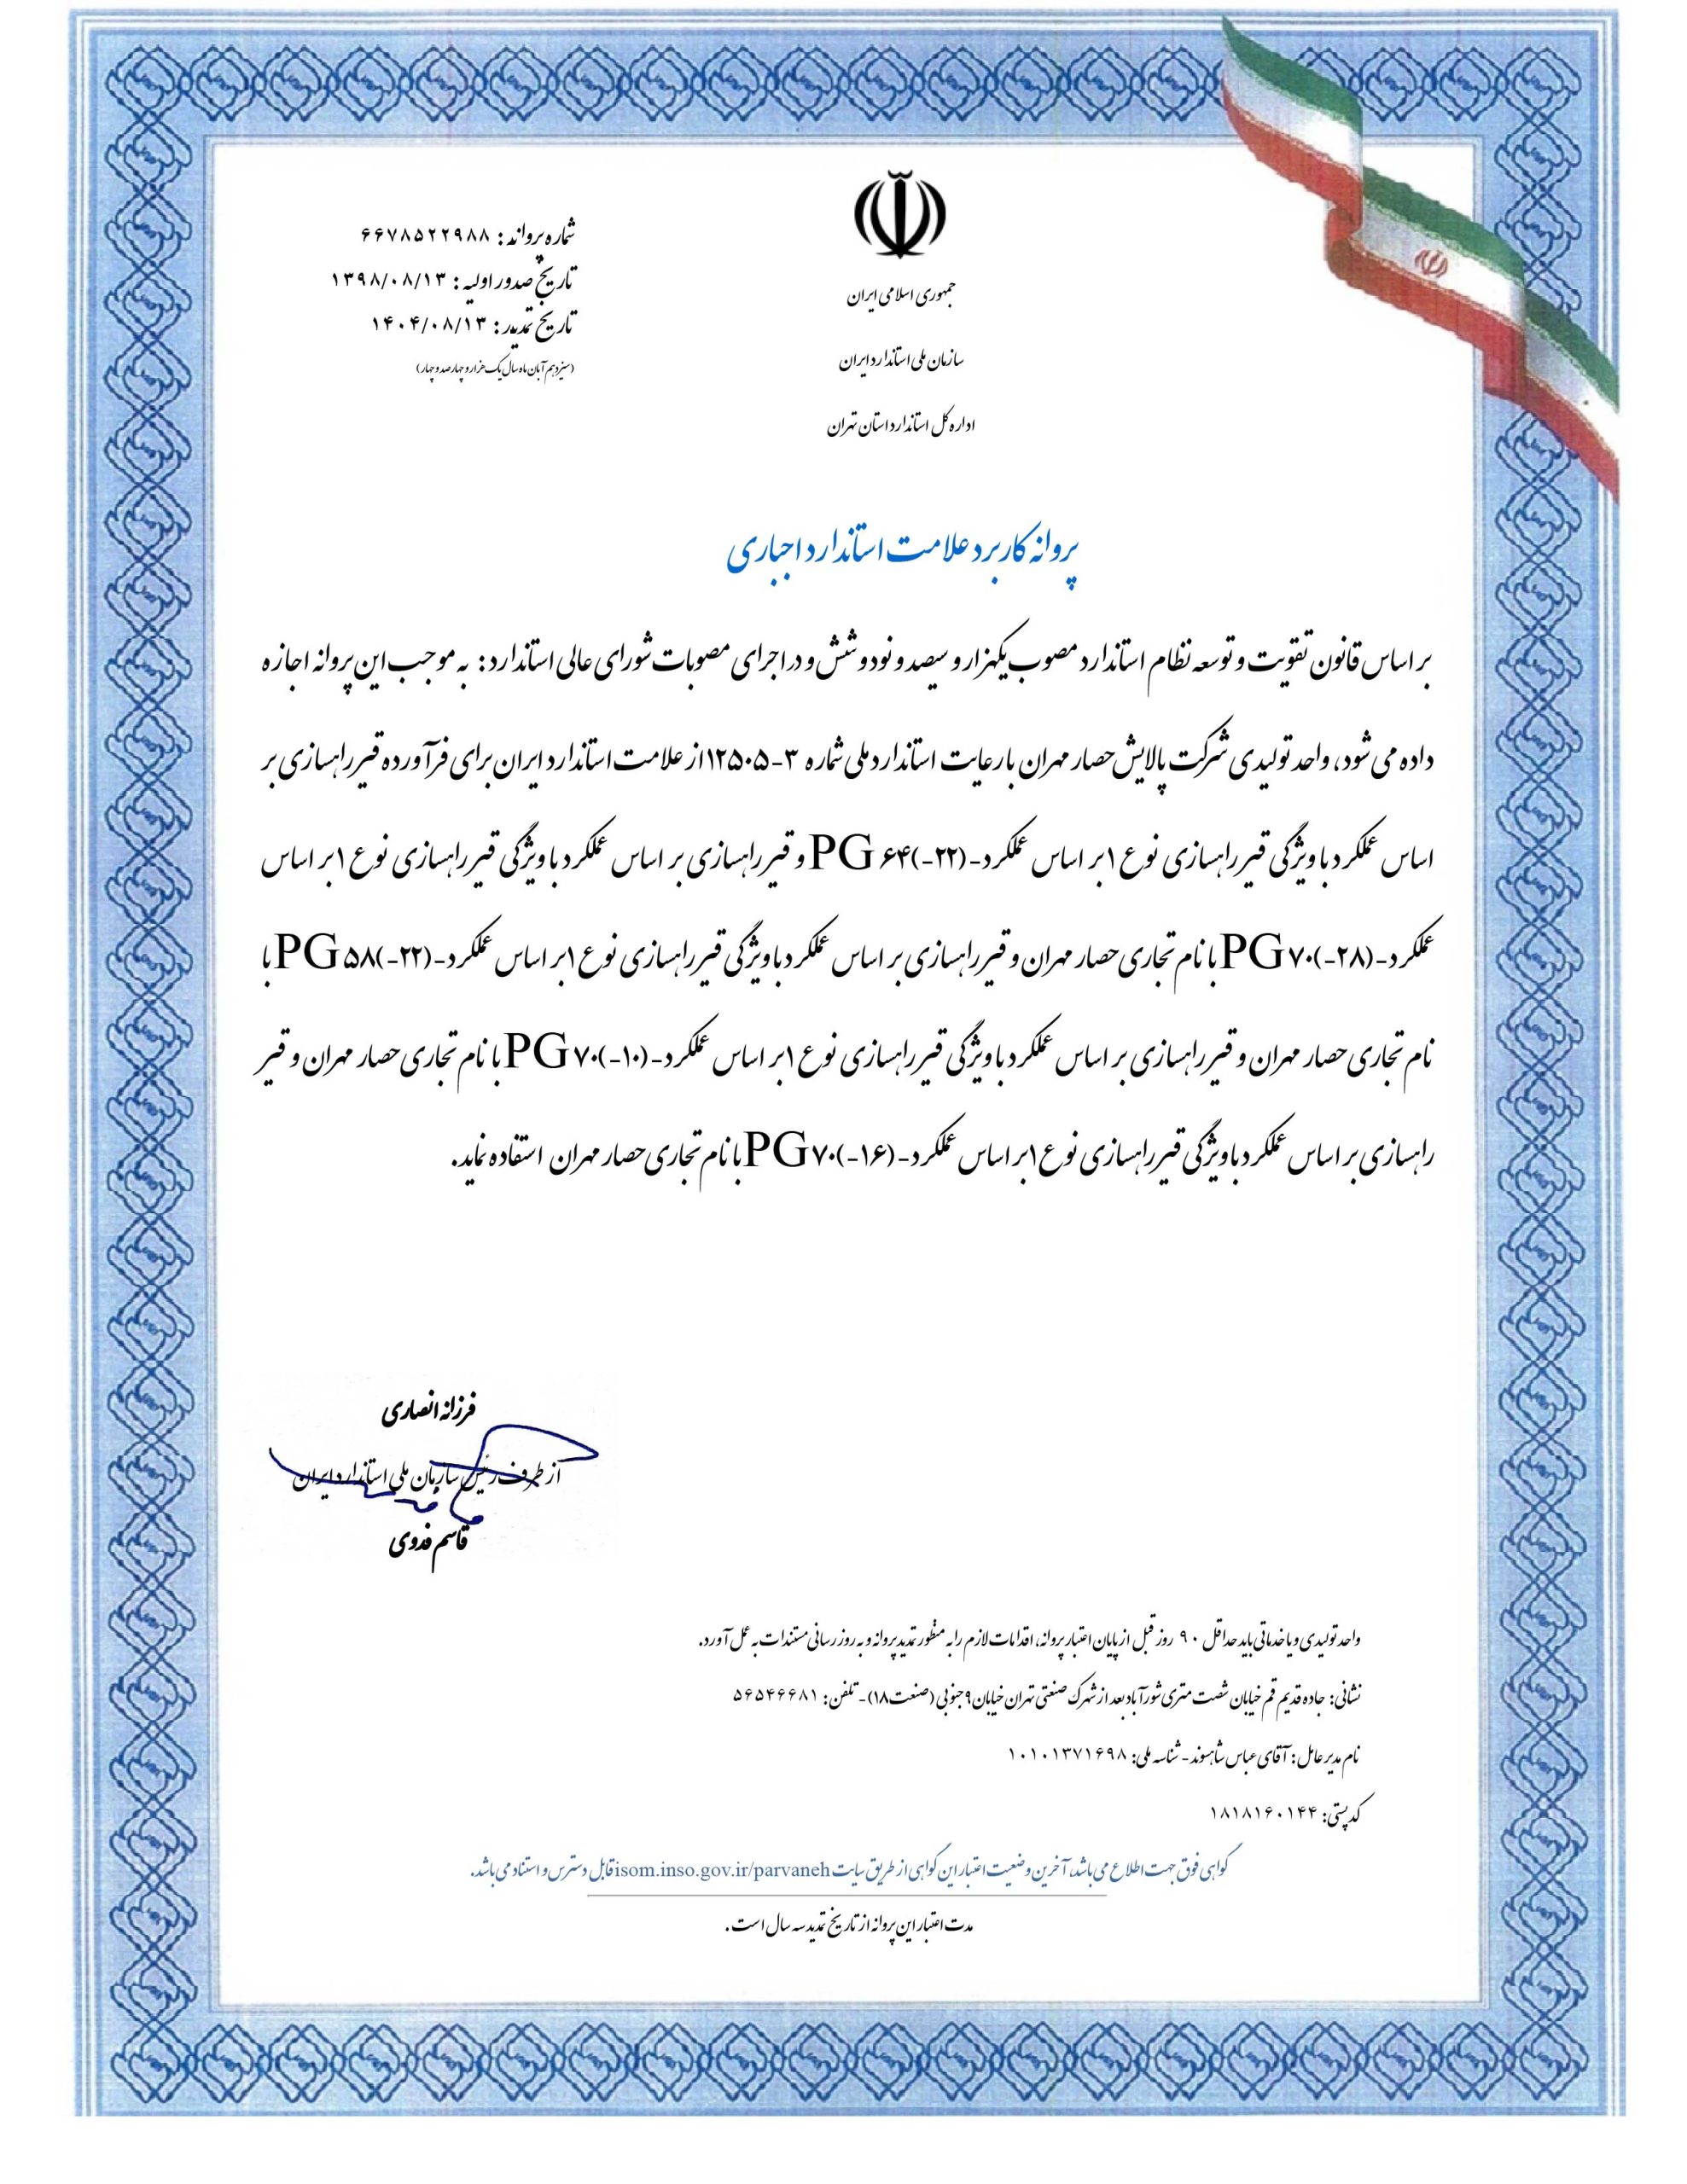 جمهوری اسلامی ایران
سازمان ملی استاندارد ایران
اداره کل استاندارد استان تهران
شماره پروانه : ۶۶۷۸۵۲۲۹۸۸
تاریخ صدور اولیه : ۱۳۹۸/۰۸/۱۳
تاریخ تمدید : ۱۴۰۴/۰۸/۱۳
(سیزدهم آبان ماه سال یک هزار و چهارصد و چهار)
پروانه کاربرد علامت استاندارد اجباری
بر اساس قانون تقویت و توسعه نظام استاندارد مصوب یکهزار و سیصد و نود و شش و در اجرای مصوبات شورای عالی استاندارد : به موجب این پروانه اجازه
داده می شود، واحد تولیدی شرکت پالایش حصار مهران با رعایت استاندارد ملی شماره ۳-۱۲۵۰۵ از علامت استاندارد ایران برای فرآورده قیر راهسازی بر
اساس عملکرد با ویژگی قیر راهسازی نوع ۱ بر اساس عملکرد-(۲۲-)۶۴ PG و قیر راهسازی بر اساس عملکرد با ویژگی قیر راهسازی نوع ۱ بر اساس
عملکرد-(۲۸-)۷۰ PG با نام تجاری حصار مهران و قیر راهسازی بر اساس عملکرد با ویژگی قیر راهسازی نوع ۱ بر اساس عملکرد-(۲۲-)۵۸ PG با
نام تجاری حصار مهران و قیر راهسازی بر اساس عملکرد با ویژگی قیر راهسازی نوع ۱ بر اساس عملکرد-(۱۰-)۷۰ PG با نام تجاری حصار مهران و قیر
راهسازی بر اساس عملکرد با ویژگی قیر راهسازی نوع ۱ بر اساس عملکرد-(۱۶-)۷۰ PG با نام تجاری حصار مهران استفاده نماید.
فرزانه انصاری
از طرف رئیس سازمان ملی استاندارد ایران
قاسم فدوی
واحد تولیدی و یا خدماتی باید حداقل ۹۰ روز قبل از پایان اعتبار پروانه، اقدامات لازم را به منظور تمدید پروانه و به روز رسانی مستندات به عمل آورد.
نشانی: جاده قدیم قم خیابان شصت متری شورآباد بعد از شهرک صنعتی تهران خیابان ۹ جنوبی (صنعت ۱۸) - تلفن: ۵۶۵۴۶۶۸۱
نام مدیر عامل : آقای عباس شاهسوند - شناسه ملی: ۱۰۱۰۱۳۷۱۶۹۸
کد پستی: ۱۸۱۸۱۶۰۱۴۴
گواهی فوق جهت اطلاع می باشد، آخرین وضعیت اعتبار این گواهی از طریق سایت isom.inso.gov.ir/parvaneh قابل دسترس و استناد می باشد.
مدت اعتبار این پروانه از تاریخ تمدید سه سال است .